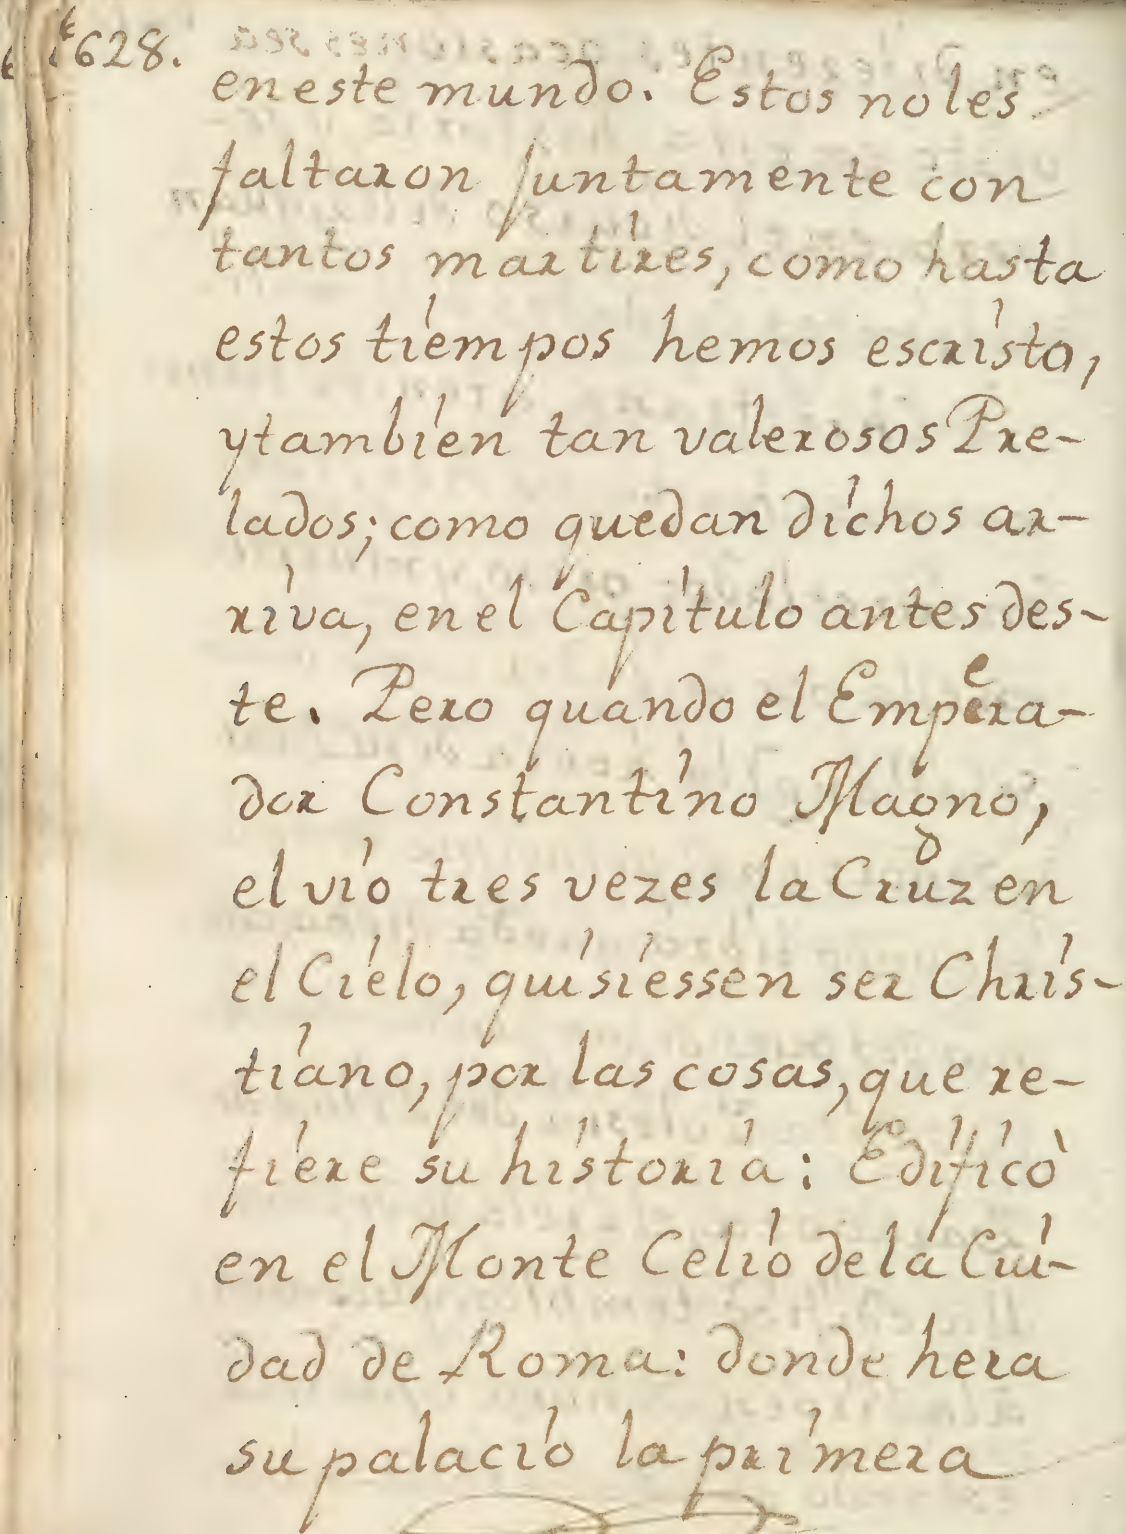 1628.
en este mundo. Estos no les
faltaron juntamente con
tantos martires, como hasta
estos tiempos hemos escristo,
y tambien tan valerosos Pre-
lados; como quedan dichos ar-
riva, en el Capitulo antes des-
te. Pero quando el Empera-
dor Constantino Magno,
el vio tres vezes la Cruz en
el Cielo, quisiessen ser Chris-
tiano, por las cosas, que re-
fiere su historia: Edificò
en el Monte Celio de la Ciu-
dad de Roma: donde hera
su palacio la primera